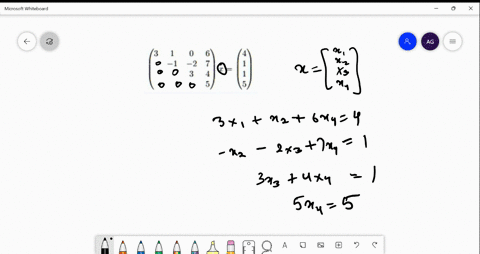 Microsoft Whiteboard
AG
3 1 0 6   4
0 -1 -2 7   1
0 0 3 4 x = 1
0 0 0 5   5
x = [x₁ x₂ x₃ x₄]
3x₁ + x₂ + 6x₄ = 4
-x₂ - 2x₃ + 7x₄ = 1
3x₃ + 4x₄ = 1
5x₄ = 5